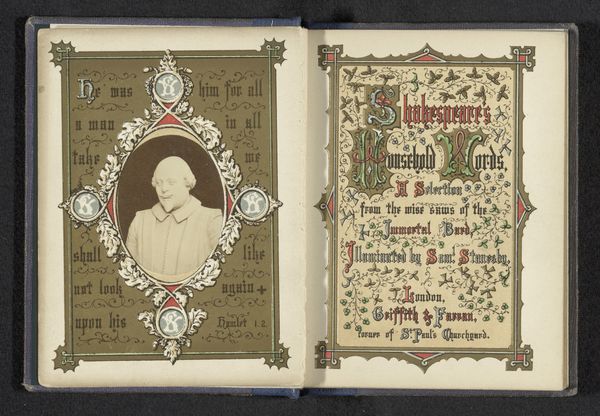 He was
a man
take
him for all
in all
me
shall
not look
upon his
like
again +
Hamlet 1.2.
Shakespeare's
Household Words
A Selection
from the wise saws of the
Immortal Bard,
Illuminated by Saml. Stanesby,
London,
Griffith & Farran,
corner of St. Paul's Churchyard.